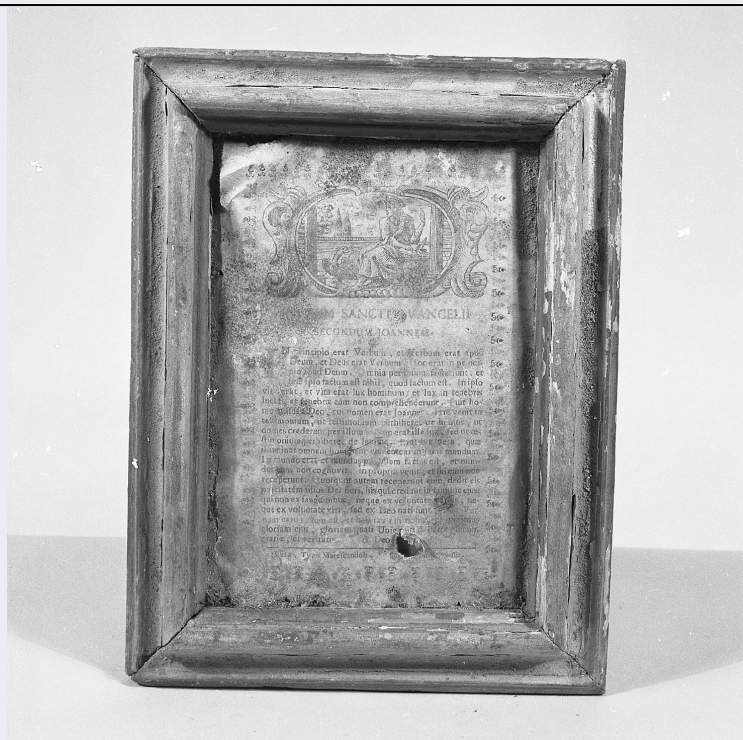 SANCTI EVANGELII
SECUNDUM JOANNEM.
Principio erat Verbum, et Verbum erat apud
Deum, et Deus erat Verbum. Hoc erat in princi-
pio apud Deum. Omnia per ipsum facta sunt, et
sine ipso factum est nihil, quod factum est. In ipso
vita erat, et vita erat lux hominum; et lux in tenebris
lucet, et tenebræ eam non comprehenderunt. Fuit ho-
mo missus a Deo, cui nomen erat Joannes. Hic venit in
testimonium, ut testimonium perhiberet de lumine, ut
omnes crederent per illum. Non erat ille lux, sed ut te-
stimonium perhiberet de lumine. Erat lux vera, quæ
illuminat omnem hominem venientem in hunc mundum.
In mundo erat et mundus per ipsum factus est, et mun-
dus eum non cognovit. In propria venit, et sui eum non
receperunt. Quotquot autem receperunt eum, dedit eis
potestatem filios Dei fieri, his qui credunt in nomine ejus:
qui non ex sanguinibus, neque ex voluntate carnis, ne-
que ex voluntate viri, sed ex Deo nati sunt
gloriam ejus, gloriam quasi Unigeniti
gratiæ, et veritatis. Deo
Typis